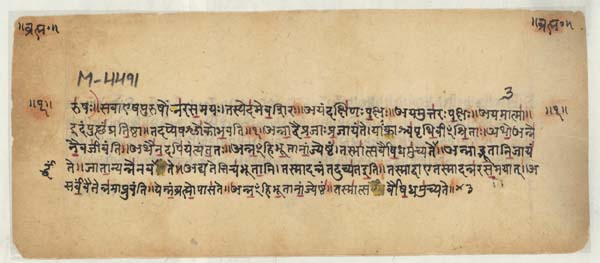 ॥ब्रह्म॰॥ ॥ब्रह्म॰॥
M-4491
3
रुषः॥सवाएषपुरुषोन्नरसमयः॥तस्येदमेवशिरः॥अयंदक्षिणःपक्षः॥अयमुत्तरःपक्षः॥अयमात्मा॥
॥१॥ इदंपुछंप्रतिष्ठा॥तदप्येषश्लोकोभवति॥१॥अन्नाद्वैप्रजाःप्रजायंते॥याःकाश्चपृथिवीꣳश्रिताः॥अथोअन्ने ॥१॥
नैवजीवंति॥अथैनदपियंत्यंततः॥अन्नꣳहिभूतानांज्येष्ठं॥तस्मात्सर्वौषधमुच्यते॥अन्नाद्भूतानिजायं
ते॥जातान्यन्नेनवर्धंते॥अद्यतेत्तिचभूतानि॥तस्मादन्नंतदुच्यतइति॥तस्माद्वाएतस्मादन्नरसमयात्॥अ
सर्वंवैतेन्नमाप्नुवंति॥येन्नंब्रह्मोपासते॥अन्नꣳहिभूतानांज्येष्ठं॥तस्मात्सर्वौषधमुच्यते॥×3